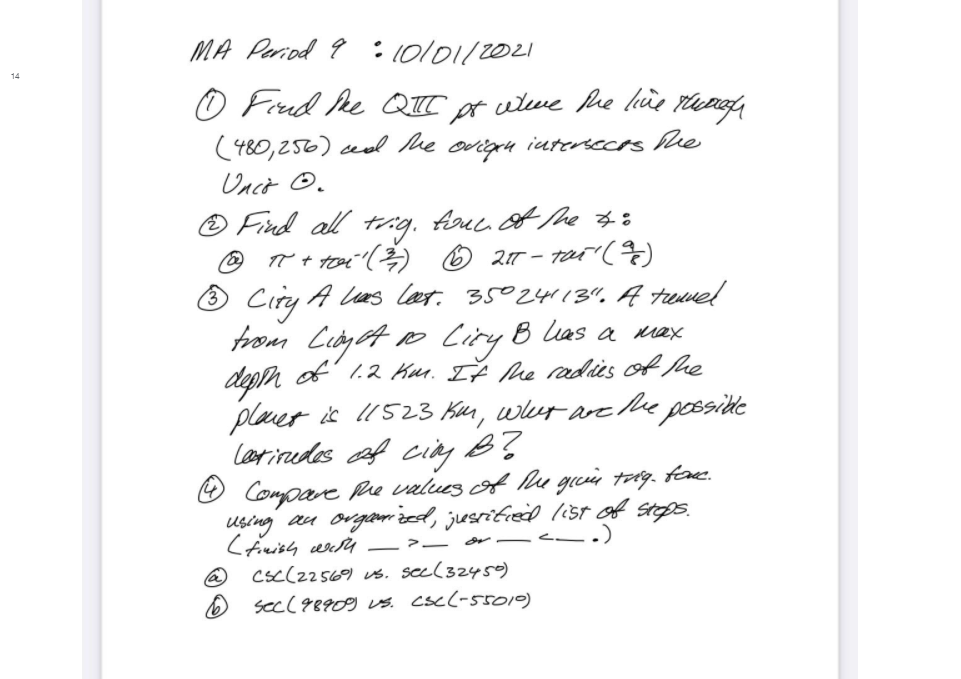 14
MA Period 9 : 10/01/2021
① Find the QIII pt where the line through
(480,256) and the origin intersects the
Unit ⊙.
② Find all trig. func. of the ∡:
ⓐ π + tan⁻¹(3/7) ⓑ 2π - tan⁻¹(9/8)
③ City A has lat. 35°24'13". A tunnel
from City A to City B has a max
depth of 1.2 Km. If the radius of the
planet is 11523 Km, what are the possible
latitudes of city B?
④ Compare the values of the given trig. func.
using an organized, justified list of steps.
(finish with __ > __ or __ < __.)
ⓐ csc(2256°) vs. sec(3245°)
ⓑ sec(9890°) vs. csc(-5501°)